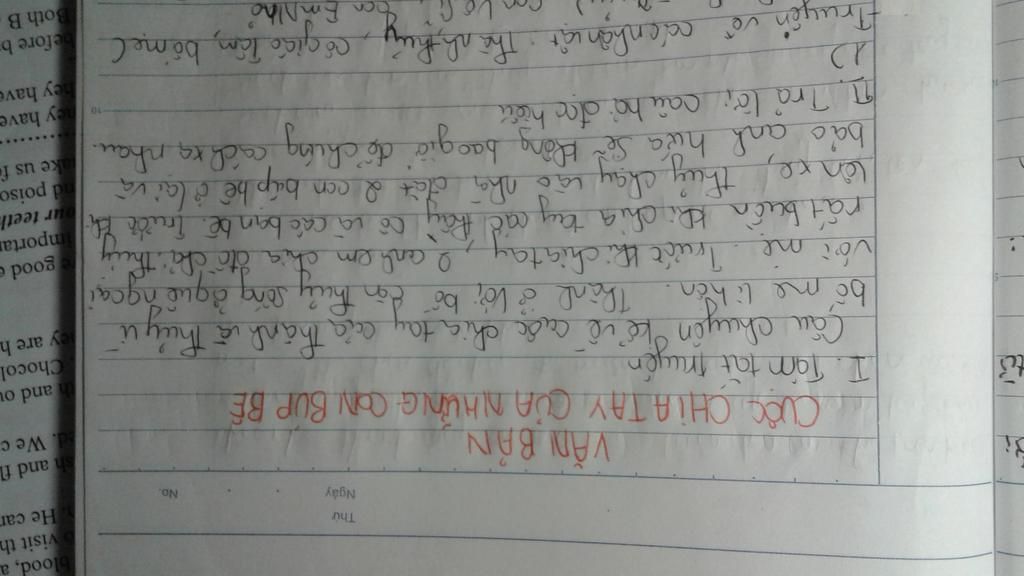 Thứ
Ngày
No.
VĂN BẢN
CUỘC CHIA TAY CỦA NHỮNG CON BÚP BÊ
I. Tóm tắt truyện
Câu chuyện kể về cuộc chia tay của Thành và Thủy vì
bố mẹ li hôn. Thành ở với bố còn Thủy sống ở quê ngoại
với mẹ. Trước khi chia tay, 2 anh em chia đồ chơi. Thủy
rất buồn khi chia tay các thầy cô và các bạn bè. Trước kh
lên xe, Thủy chạy vào nhà đặt 2 con búp bê ở lại và
bảo anh hứa sẽ không bao giờ để chúng cách xa nhau.
II. Trả lời câu hỏi đọc hiểu
1)
Truyện về các nhân vật: Thành, Thủy, cô giáo Tâm, bố mẹ (
con Vệ Sĩ, con Em Nhỏ
blood, a
o visit th
. He can
sh and fl
ed. We c
th and ou
Chocol
ey are h
re good e
importan
our teeth
nd poiso
ake us f
hey have
hey have
before b
Both B